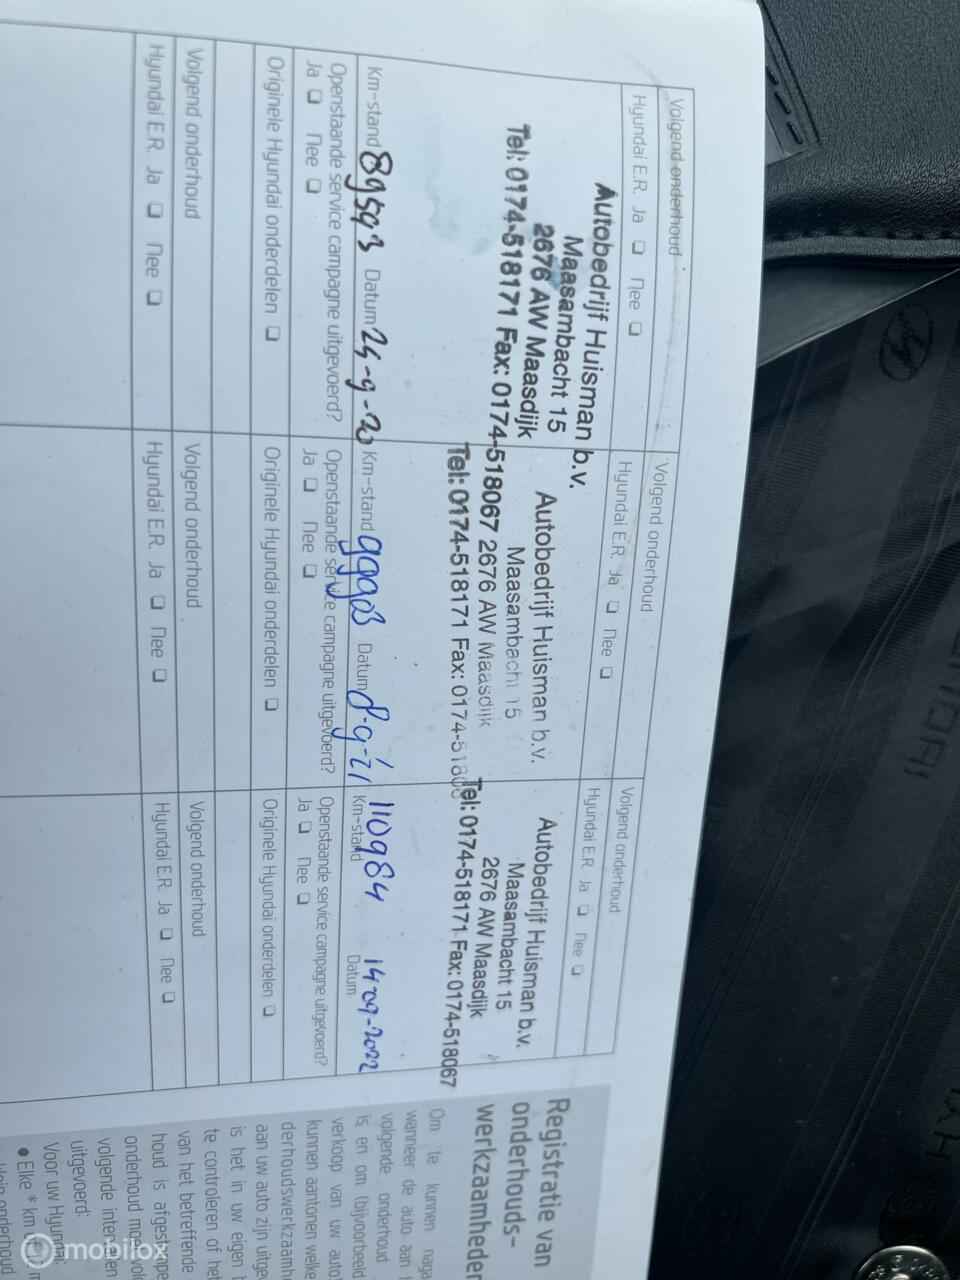 Volgend onderhoud
Hyundai E.R. Ja ❏ Nee ❏
Autobedrijf Huisman b.v.
Maasambacht 15
2676 AW Maasdijk
Tel: 0174-518171 Fax: 0174-518067
Km-stand 89593 Datum 24-9-20
Openstaande service campagne uitgevoerd?
Ja ❏ Nee ❏
Originele Hyundai onderdelen ❏
Volgend onderhoud
Hyundai E.R. Ja ❏ Nee ❏
Volgend onderhoud
Hyundai E.R. Ja ❏ Nee ❏
Autobedrijf Huisman b.v.
Maasambacht 15
2676 AW Maasdijk
Tel: 0174-518171 Fax: 0174-5180
Km-stand 99903 Datum 8-9-21
Openstaande service campagne uitgevoerd?
Ja ❏ Nee ❏
Originele Hyundai onderdelen ❏
Volgend onderhoud
Hyundai E.R. Ja ❏ Nee ❏
Volgend onderhoud
Hyundai E.R. Ja ❏ Nee ❏
Autobedrijf Huisman b.v.
Maasambacht 15
2676 AW Maasdijk
Tel: 0174-518171 Fax: 0174-518067
110984 14-09-2022
Km-stand Datum
Openstaande service campagne uitgevoerd?
Ja ❏ Nee ❏
Originele Hyundai onderdelen ❏
Volgend onderhoud
Hyundai E.R. Ja ❏ Nee ❏
Registratie van
onderhouds-
werkzaamheden
Om te kunnen naga
wanneer de auto aan
volgende onderhoud
is en om (bijvoorbeeld
verkoop van uw auto
kunnen aantonen welke
derhoudswerkzaamh
aan uw auto zijn uitge
is het in uw eigen
te controleren of het
van het betreffende
houd is afgestempe
onderhoud moet vol
volgende inte
uitgevoerd:
Voor uw Hyundai
• Elke * km
onderhoud
mobilox